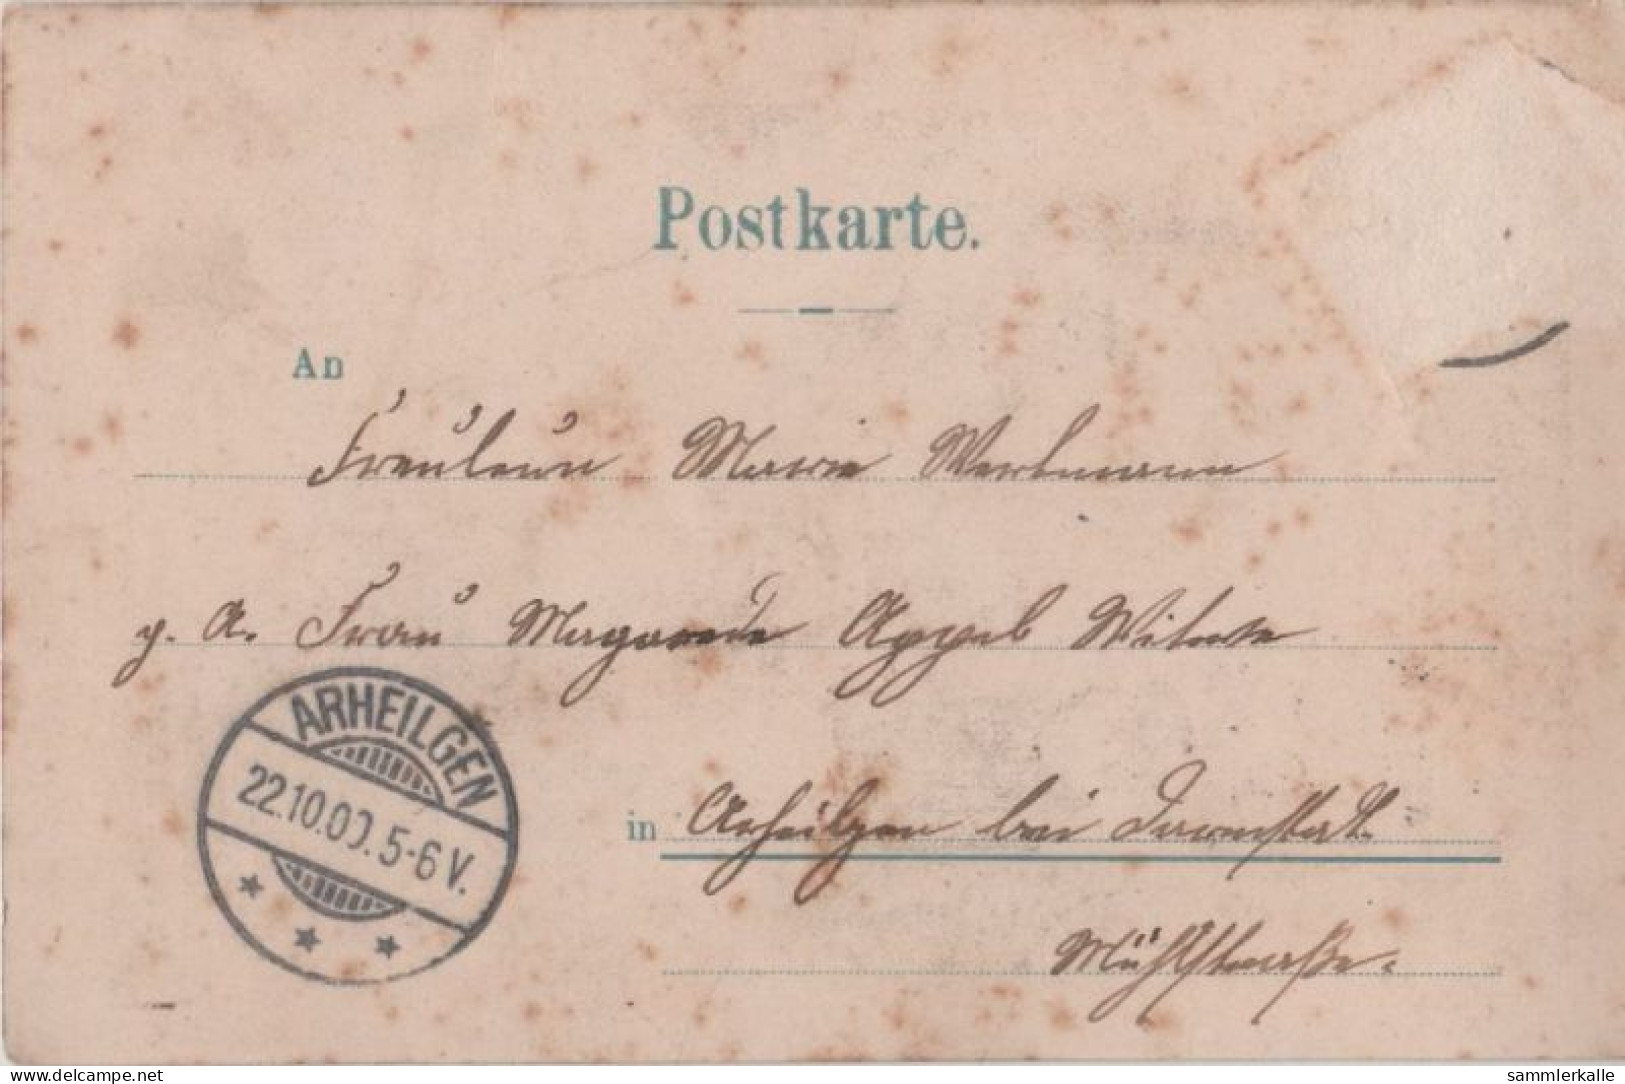 Postkarte.
An
Fräulein Marie Werkmann
p. A. Frau Magarede Appel Witwe
ARHEILGEN
22.10.00. 5-6 V.
in Arheilgen bei Darmstadt.
Mühlstraße.
www.delcampe.net
sammlerkalle